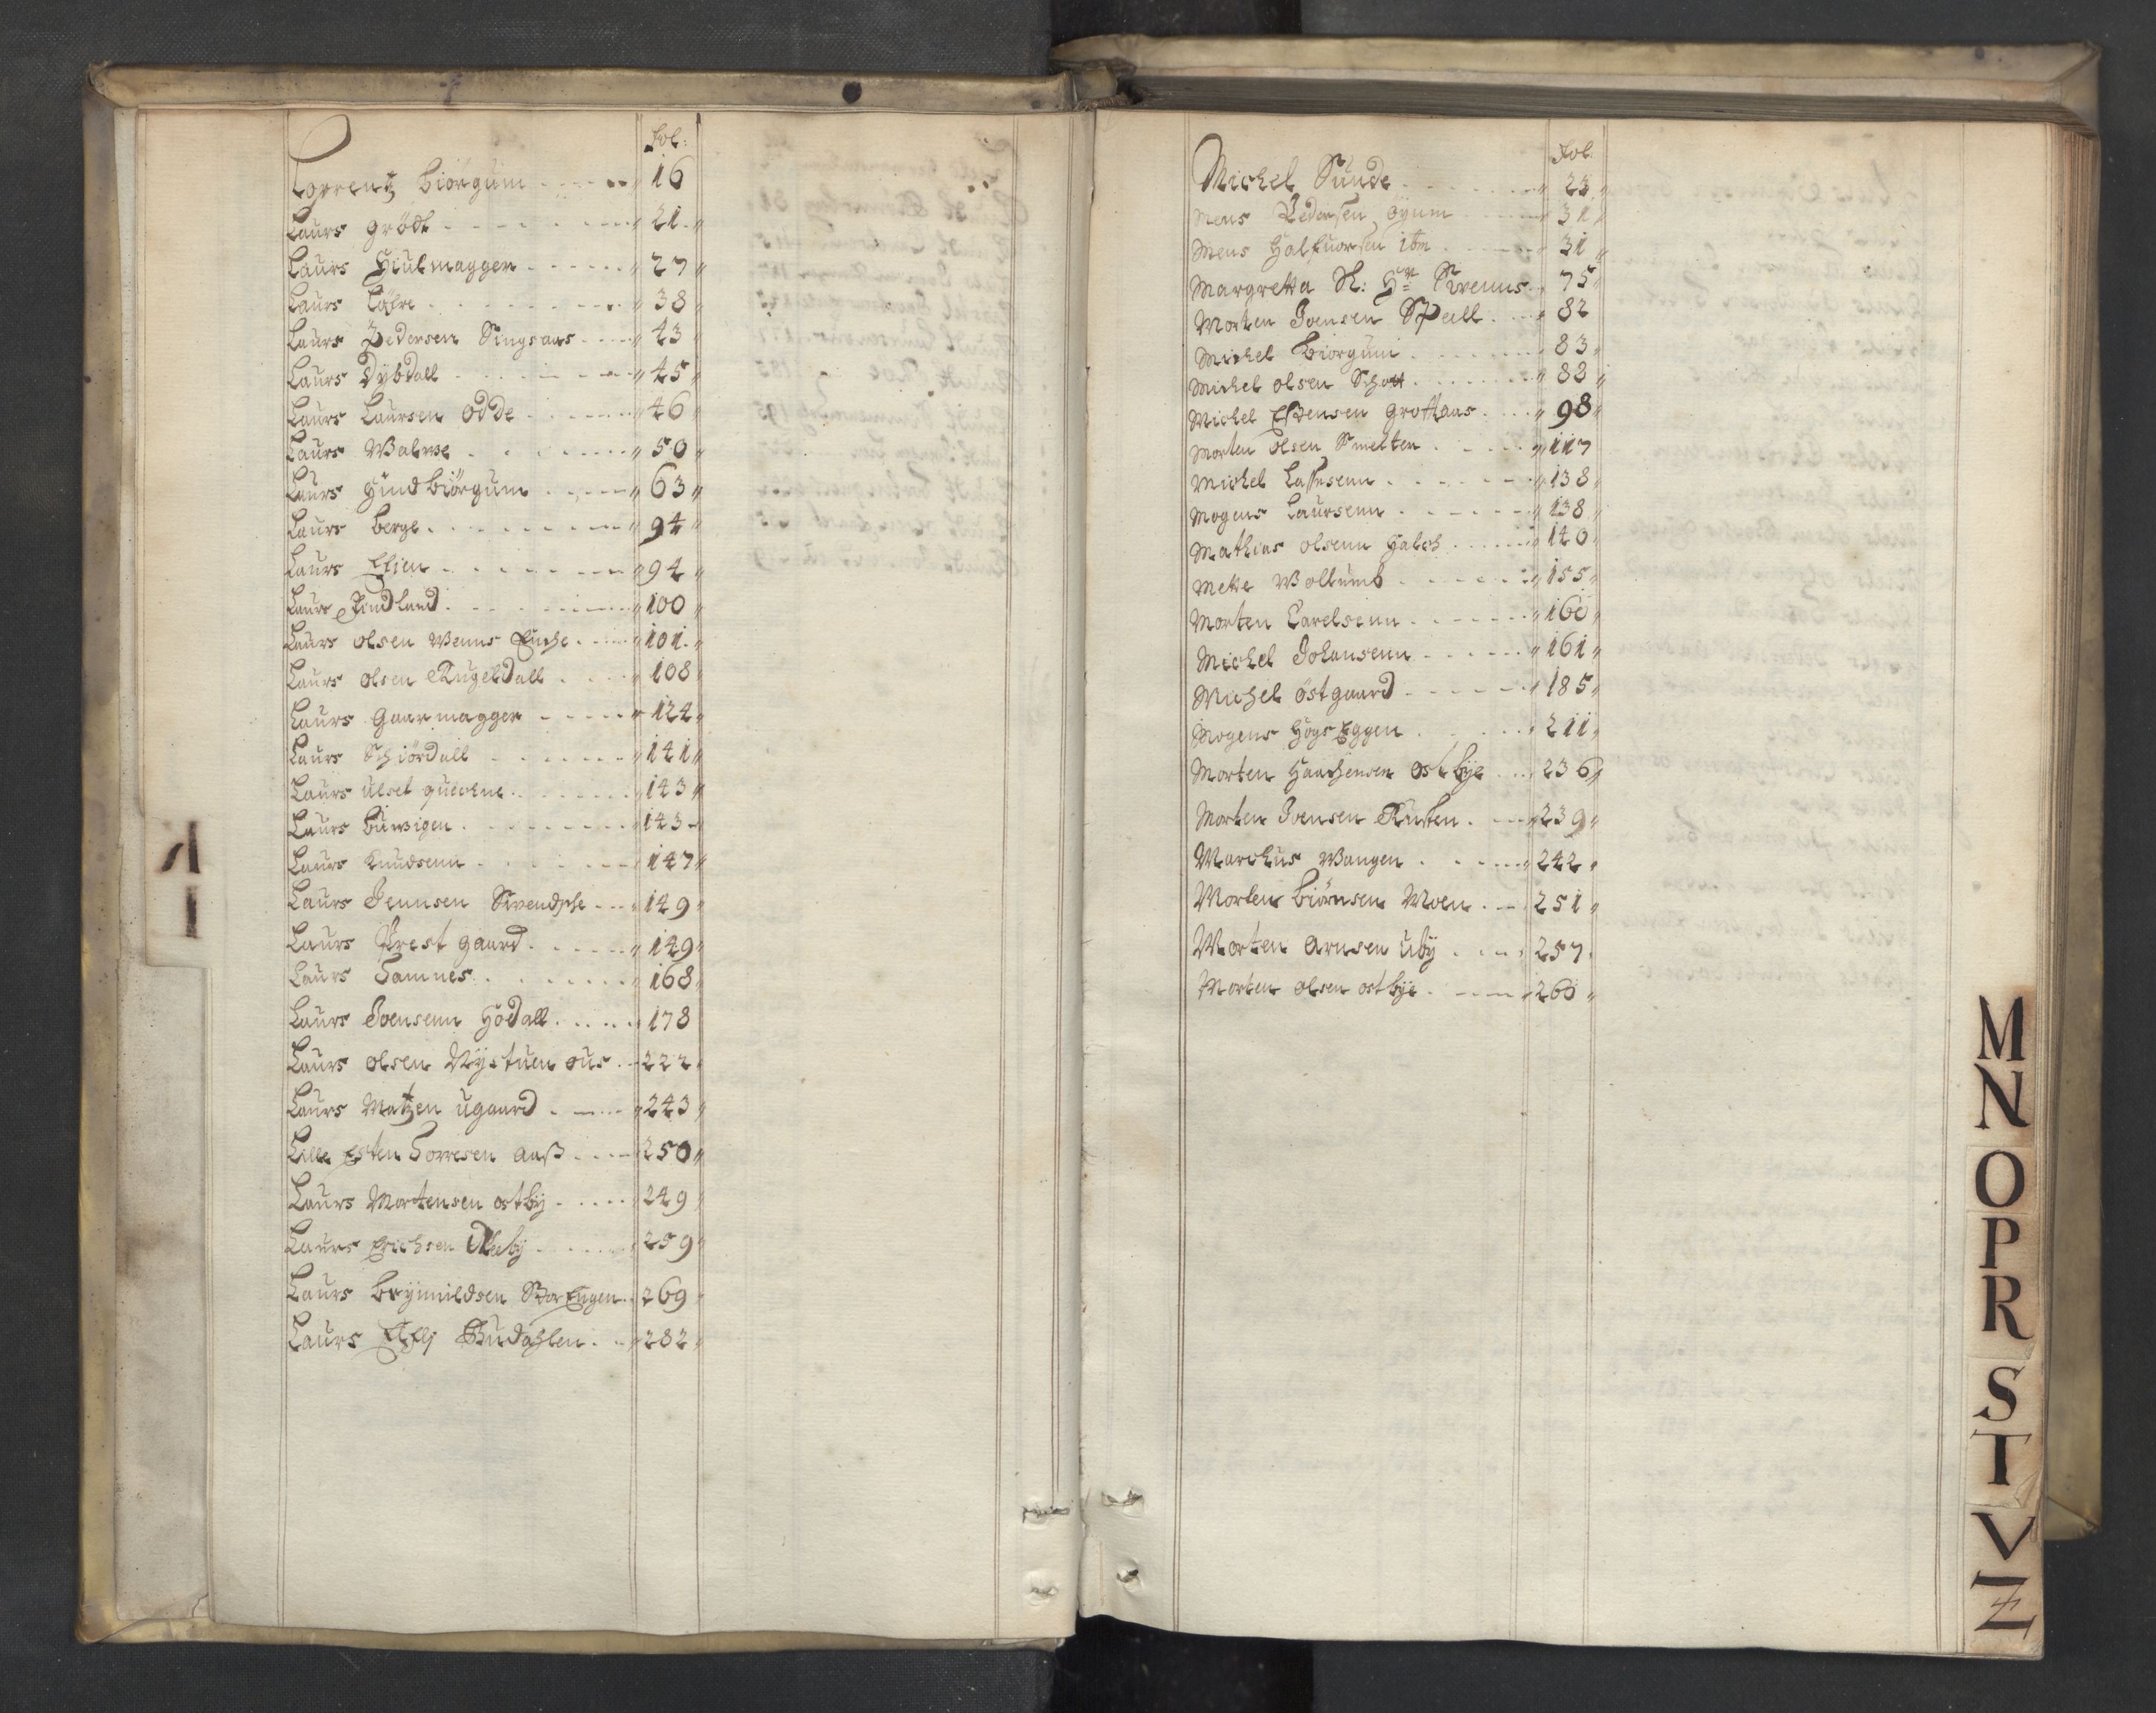 Fol:
Lorrentz Biörgum 16
Laurs Grödt 21
Laurs Hiulmaggen 27
Laurs 38
Laurs Pedersen Singsaas 43
Laurs Dybdall 45
Laurs Laursen Odde 46
Laurs Walwe 50
Laurs Hindbiörgum 63
Laurs Berge 94
Laurs Elien 94
Laurs Findland 100
Laurs olsen 101
Laurs olsen Kugeldall 108
Laurs Gaarmagger 124
Laurs Schiördall 141
Laurs ulset quechne 143
Laurs Burvigen 143
Laurs Knudsenn 147
Laurs Jennsen 149
Laurs Prestgaard 149
Laurs Samnes 168
Laurs Joensenn Hödall 178
Laurs olsen Nystuen ous 222
Laurs Matzen ugaard 243
Lille Esten Torresen Aaß 250
Laurs Mortensen ostby 249
Laurs Erichsen 259
Laurs Brynnildsen StorEngen 269
Laurs Elli Budahlen 282
Fol.
Michel Sunde 23
Mens Pedersen öyum 31
Mens Halfuorsen itm 31
Margretta Sl: Hr Svenns 75
Morten Joensen Spell 82
Michel Biörgum 83
Michel olsen Schott 88
Michel Espensen Grottaas 98
Morten olsen Smelter 117
Michel Lassesenn 138
Mogens Laursenn 138
Mathias olsenn Halch 140
Mette Wollumb 155
Morten Carelsenn 160
Michel Johansenn 161
Michel östgaard 185
Mogens HögsEggen 211
Morten Haachensen Ostbye 236
Morten Joensen Kusten 239
Marchus Wangen 242
Morten Biörnsen Moen 251
Morten Arnsen uby 257
Morten olsen ostbye 260
M
N
O
P
R
S
T
V
Z